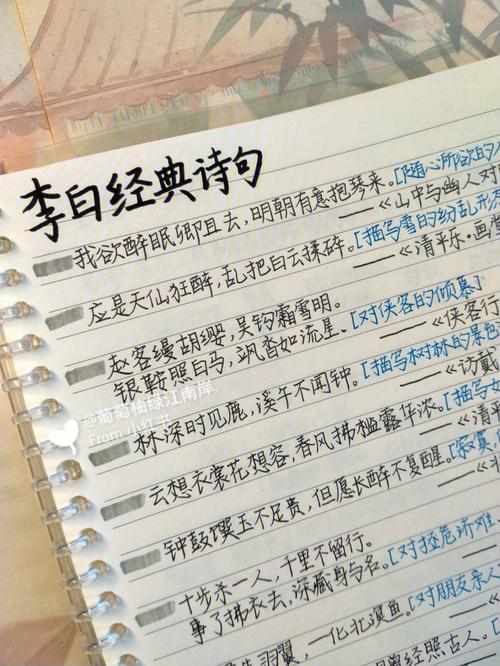 李白经典诗句
我欲醉眠卿且去，明朝有意抱琴来。[随心所欲的
——《山中与幽人对
应是天仙狂醉，乱把白云揉碎。[描写雪的纷乱形
——《清平乐·画
赵客缦胡缨，吴钩霜雪明。
银鞍照白马，飒沓如流星。[对侠客的倾慕]
——《侠客行
林深时见鹿，溪午不闻钟。[描写树林的景色
——《访戴
云想衣裳花想容，春风拂槛露华浓。[描写
钟鼓馔玉不足贵，但愿长醉不复醒。[寂寞
十步杀一人，千里不留行。
事了拂衣去，深藏身与名。[对拯危济难
[对朋友亲人
羽翼，一化北溟鱼。
曾经照古人。[
@葡萄柚绿江南岸.
From 小红书